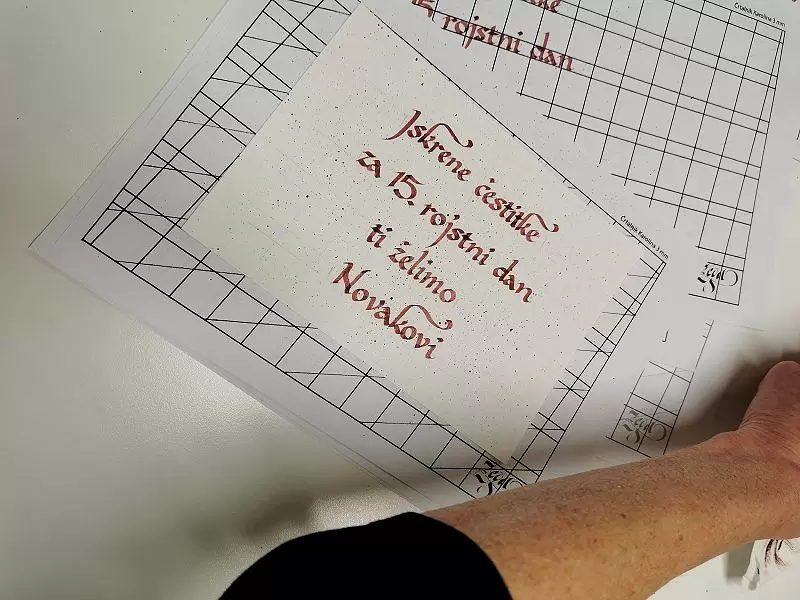 Iskrene čestitke
za 15. rojstni dan
ti želimo
Novakovi
15 rojstni dan
Črtalnik Karolina 3 mm
Črtalnik Karolina 3 mm